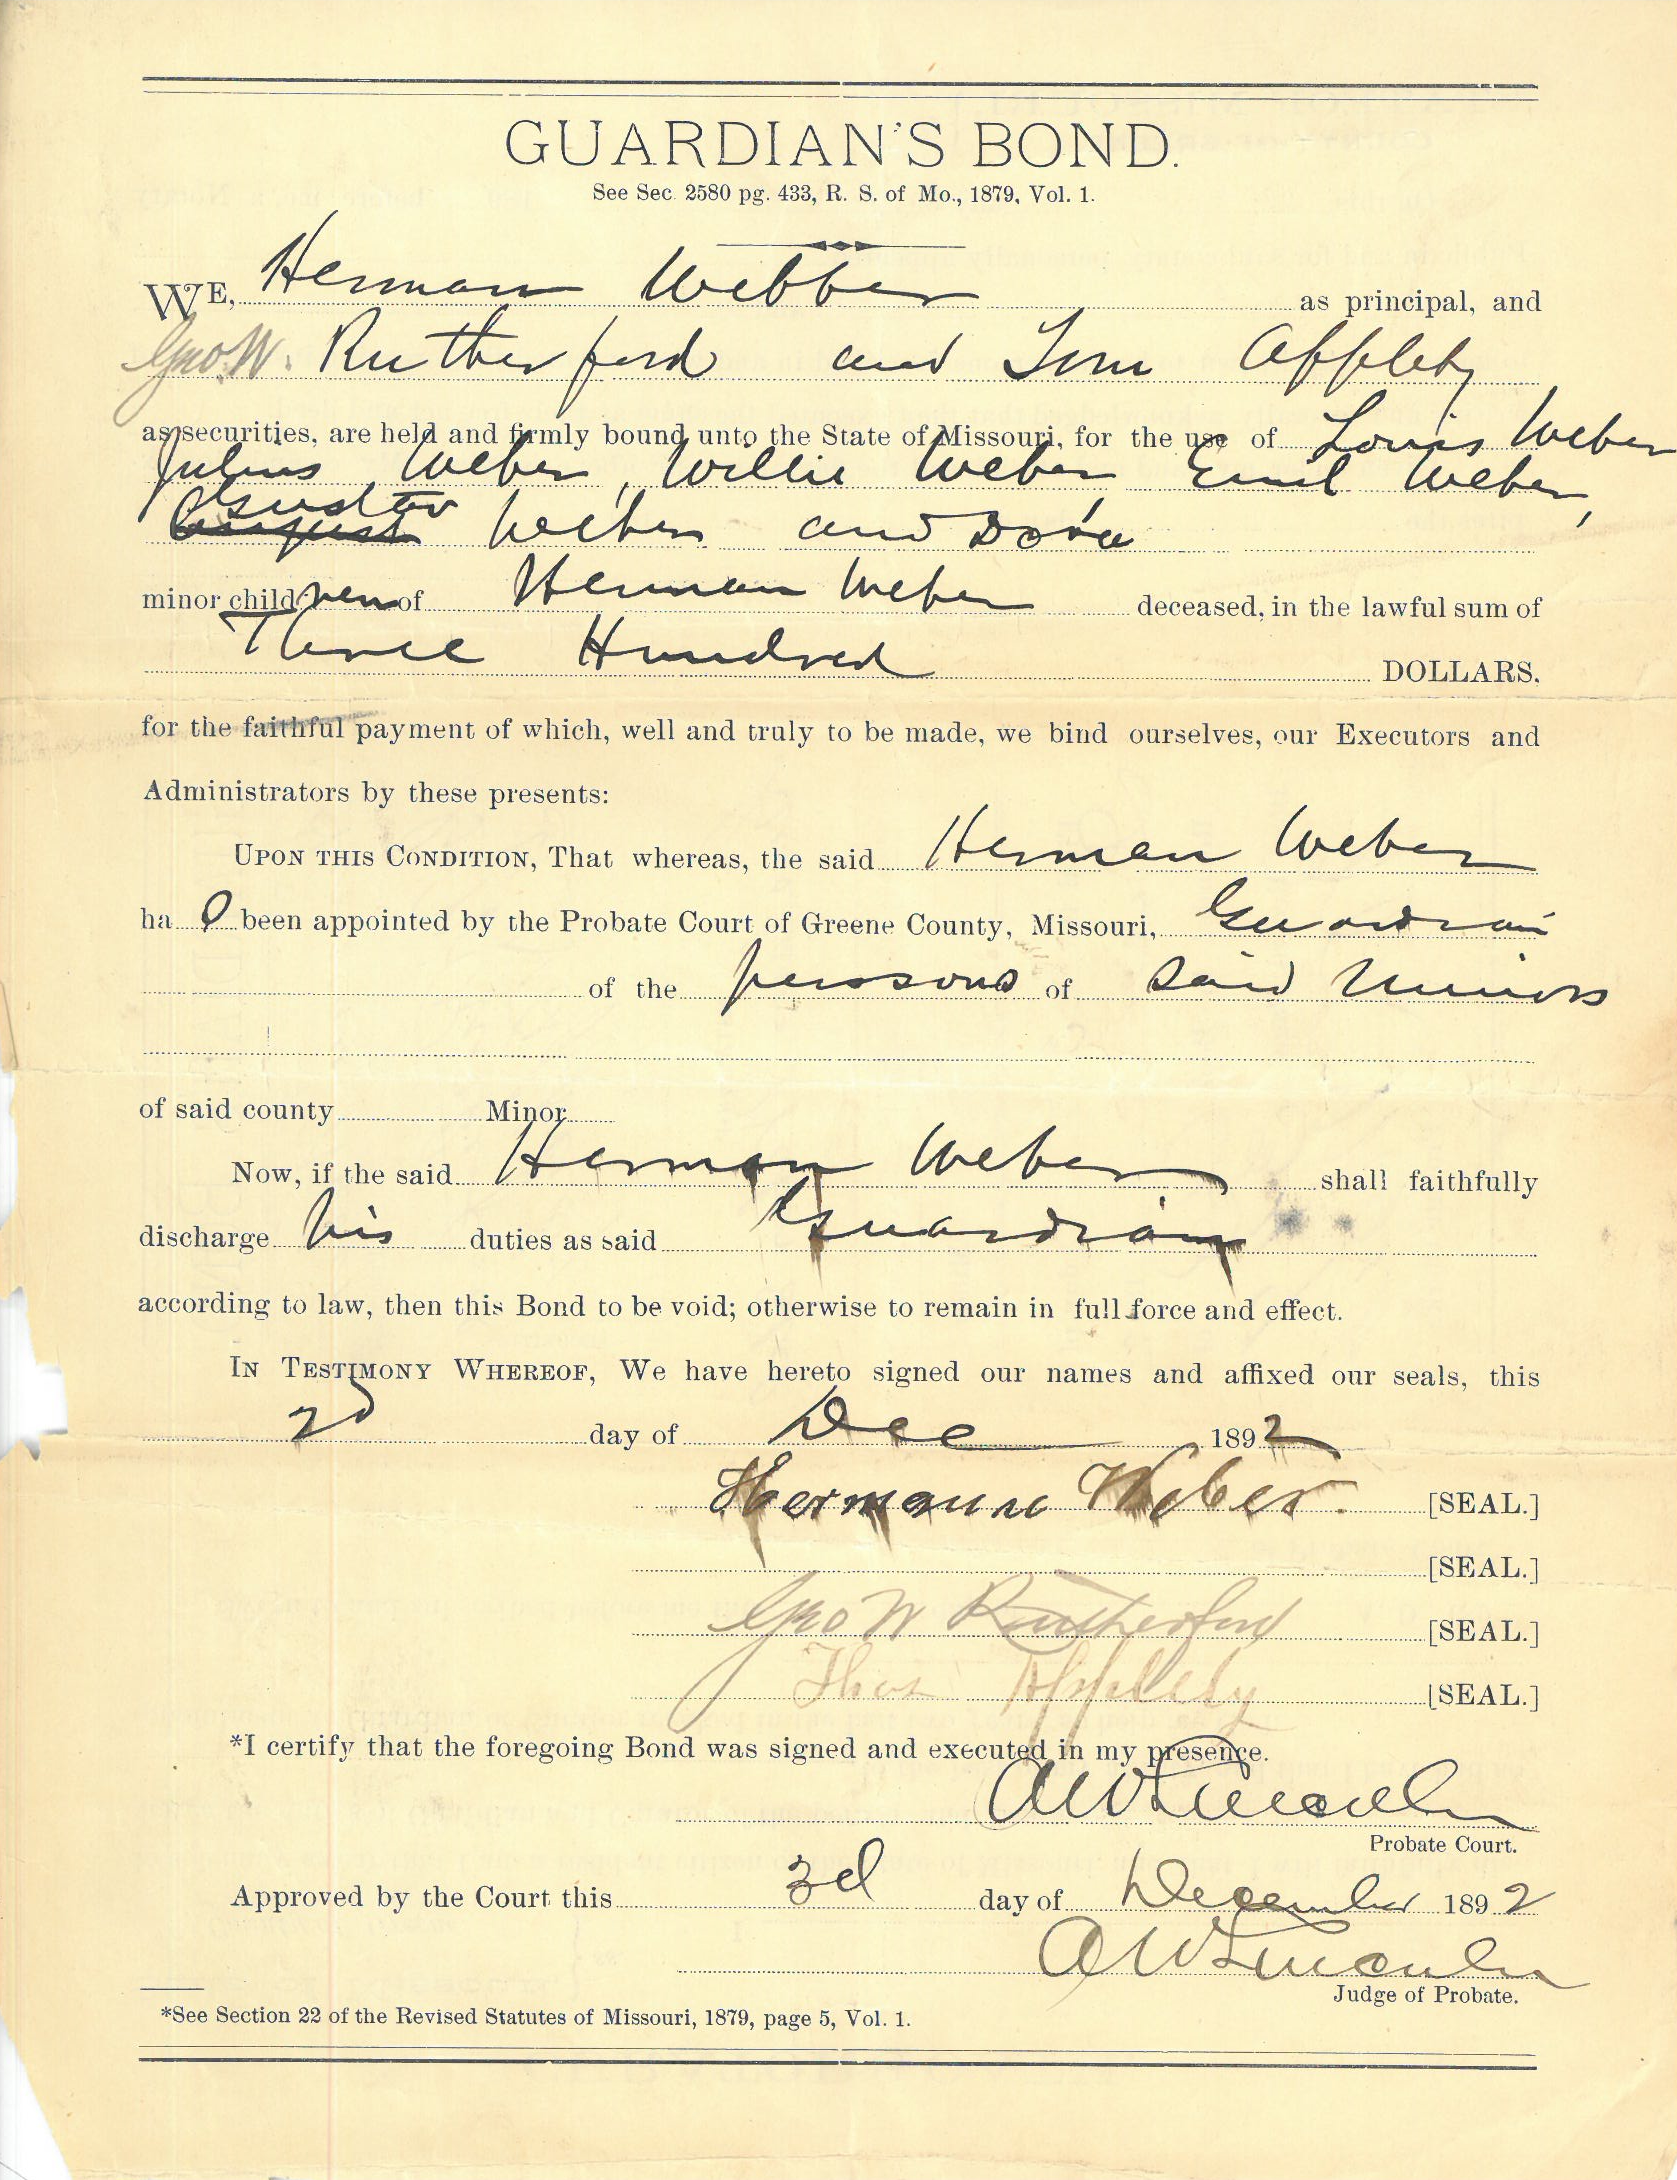 GUARDIAN'S BOND.
See Sec. 2580 pg. 433, R. S. of Mo., 1879, Vol. 1.
WE, Herman Webber as principal, and
Geo. W. Rutherford and Tom Appleby
as securities, are held and firmly bound unto the State of Missouri, for the use of Louis Weber
Julius Weber, Willie Weber Emil Weber,
Gustav
August Weber and Dora
minor children of Herman Weber deceased, in the lawful sum of
Three Hundred DOLLARS.
for the faithful payment of which, well and truly to be made, we bind ourselves, our Executors and
Administrators by these presents:
UPON THIS CONDITION, That whereas, the said Herman Weber
ha s been appointed by the Probate Court of Greene County, Missouri, Guardian
of the persons of said Minors
of said county Minor
Now, if the said Herman Weber shall faithfully
discharge his duties as said Guardian
according to law, then this Bond to be void; otherwise to remain in full force and effect.
IN TESTIMONY WHEREOF, We have hereto signed our names and affixed our seals, this
2d day of Dec 1892
Hermann Weber. [SEAL.]
[SEAL.]
Geo W Rutherford [SEAL.]
Thos Appleby [SEAL.]
*I certify that the foregoing Bond was signed and executed in my presence.
A W Lincoln
Probate Court.
Approved by the Court this 3d day of December 1892
A W Lincoln
Judge of Probate.
*See Section 22 of the Revised Statutes of Missouri, 1879, page 5, Vol. 1.